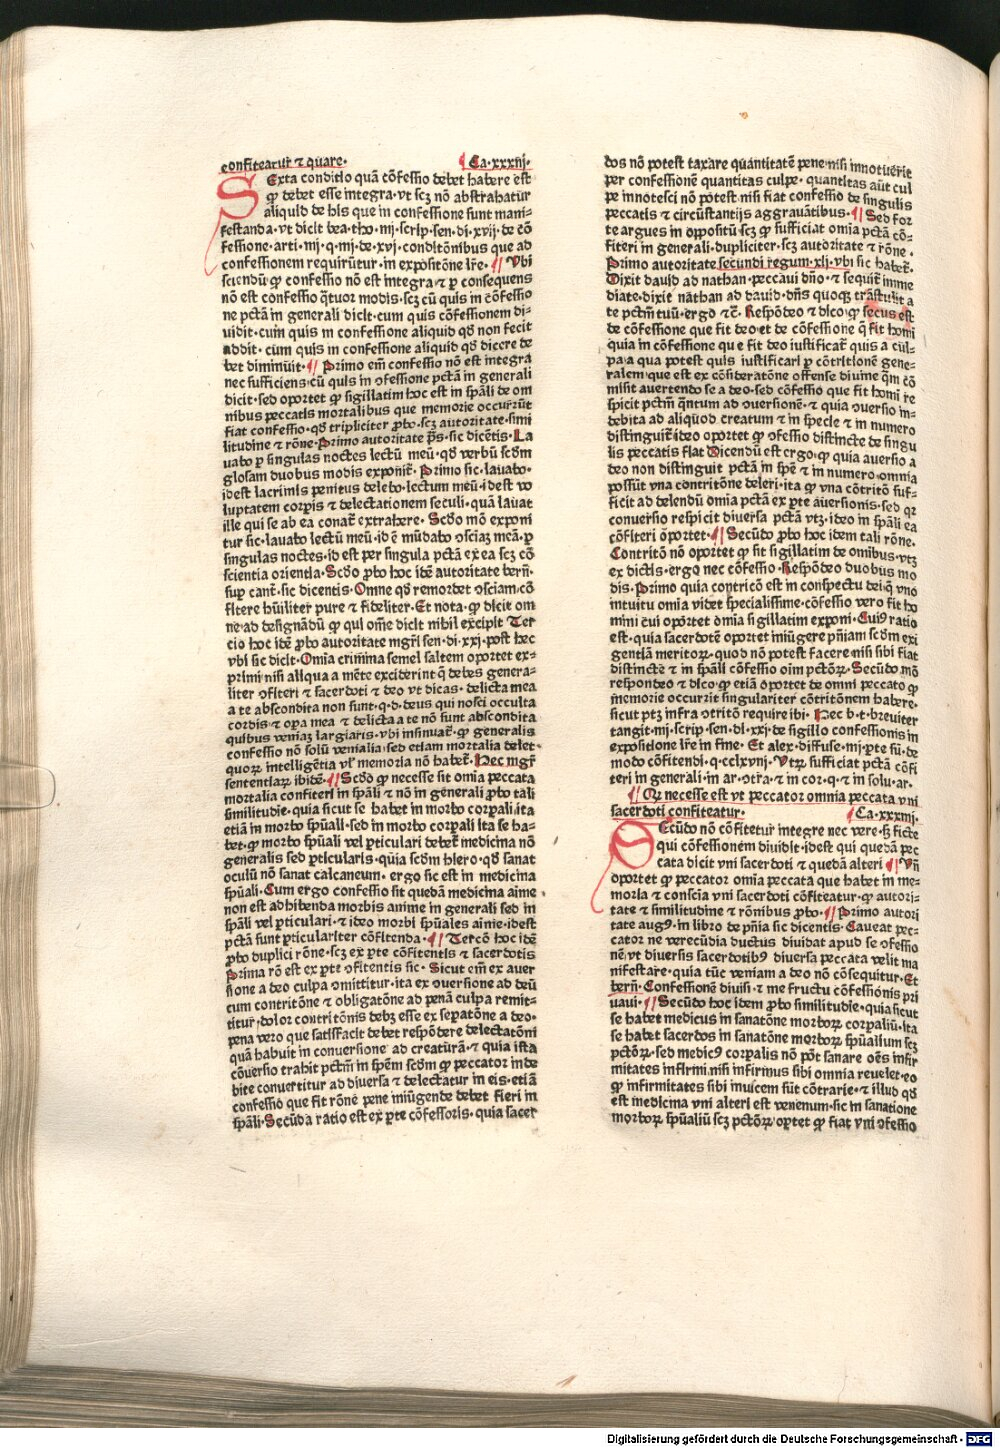 confiteatur ⁊ quare· ¶ Ca·xxxiij·
SExta conditio quā cōfessio debet habere est
ꝙ debet esse integra·vt scꝫ nō abstrahatur
aliquid de his que in confessione sunt mani-
festanda·vt dicit bea·tho·iiij·scrip·sen·di·xvij·de cō
fessione·arti·iij·q·iiij·de·xvj·conditōnibus que ad
confessionem requirūtur·in expositōne lr̄e·¶ Vbi
sciendū ꝙ confessio nō est integra·⁊ ꝑ consequens
nō est confessio q̄tuor modis·scꝫ cū quis in cōfessio
ne pctā in generali dicit·cum quis cōfessionem di-
uidit·cum quis in confessione aliquid qđ non fecit
addit·cum quis in confessione aliquid qđ dicere de
bet diminuit·¶ Primo em̄ confessio nō est integra
nec sufficiens·cū quis in ꝯfessione pctā in generali
dicit·sed oportet ꝙ sigillatim hoc est in spāli de om
nibus peccatis mortalibus que memorie occurrūt
fiat confessio·qđ tripliciter ꝓbo·scꝫ autoritate·simi
litudine ⁊ rōne·Primo autoritate p̄s·sic dicētis·La
uabo ꝑ singulas noctes lectū meū·qđ verbū scđm
glosam duobus modis exponit᷑·Primo sic·lauabo·
idest lacrimis penitus delebo·lectum meū·idest vo
luptatem corpis ⁊ delectationem seculi·quā lauat
ille qui se ab ea conat᷑ extrahere·Scđo mō exponi
tur sic·lauabo lectū meū·id ē mūdabo ꝯsciaꝫ meā·ꝑ
singulas noctes·id est per singula pctā ex ea scꝫ cō
scientia orientia·Scđo ꝓbo hoc idē autoritate bern̄·
suꝑ cant᷑·sic dicentis·Omne qđ remordet ꝯsciam·cō
fitere hūiliter pure ⁊ fideliter·Et nota·ꝙ dicit om
ne·ad designādū ꝙ qui om̄e dicit nihil excipit Ter
cio hoc idē ꝓbo autoritate mgr̄i sen·di·xxj·post hec
vbi sic dicit·Omia crimina semel saltem oportet ex-
primi·nisi aliqua a mēte exciderint q̄ debes genera-
liter ꝯfiteri ⁊ sacerdoti ⁊ deo vt dicas·delicta mea
a te abscondita non sunt·q·d·deus qui nosci occulta
cordis·⁊ opa mea ⁊ delicta a te nō sunt abscondita
quibus veniaꝫ largiaris·vbi insinuat᷑·ꝙ generalis
confessio nō solū venialia·sed etiam mortalia delet·
quoꝝ intelligētia vl᷑ memoria nō habet᷑·Hec mgr̄
sententiaꝝ ibidē·¶ Scđo ꝙ necesse sit omia peccata
mortalia confiteri in spāli ⁊ nō in generali ꝓbo tali
similitudie·quia sicut se habet in morbo corꝑali·ita
etiā in morbo spūali·sed in morbo corꝑali ita se ha-
bet·ꝙ morbo spūali vel ꝑticulari debet᷑ medicina nō
generalis sed ꝑticularis·quia scđm hiero·qđ sanat
oculū nō sanat calcaneum·ergo sic est in medicina
spūali·Cum ergo confessio sit quedā medicina aime·
non est adhibenda morbis anime in generali sed in
spāli vel ꝑticulari·⁊ ideo morbi spūales ainie·idest
pctā sunt ꝑticulariter cōfitenda·¶ Tercō hoc idē
ꝓbo duplici rōne·scꝫ ex ꝑte cōfitentis ⁊ sacerdotis
Prima rō est ex ꝑte ꝯfitentis sic·Sicut em̄ ex auer
sione a deo culpa ꝯmittitur·ita ex ꝯuersione ad deū
cum contritōne ⁊ obligatōne ad penā culpa remit-
titur·dolor contritōnis debꝫ esse ex sepatōne a deo·
pena vero que satisfacit debet respōdere delectatōni
quā habuit in conuersione ad creaturā·⁊ quia ista
cōuersio trahit pctm̄ in spēm scđm ꝙ peccator inde
bite conuertitur ad diuersa ⁊ delectatur in eis·etiā
confessio que fit rōne pene iniūgende debet fieri in
spāli·Secūda ratio est ex ꝑte cōfessoris·quia sacer
dos nō potest taxare quantitatē pene nisi innotuerit
per confessionē quantitas culpe·quantitas aūt cul
pe innotesci nō potest·nisi fiat confessio de singulis
peccatis ⁊ circūstantijs aggrauātibus·¶ Sed for
te argues in oppositū·scꝫ ꝙ sufficiat omia pctā cō-
fiteri in generali·dupliciter·scꝫ autoritate ⁊ rōne·
Primo autoritate secundi regum·xij·vbi sic habet᷑·
Dixit dauid ad nathan·peccaui dn̄o·⁊ sequit᷑ imme
diate·dixit nathan ad dauid·dn̄s quoqꝫ trāstulit a
te pctm̄ tuū·ergo ⁊c̄·Respōdeo ⁊ dico·ꝙ secus est
de cōfessione que fit deo·et de cōfessione q̄ fit homi
quia in cōfessione que fit deo iustificat᷑ quis a cul-
pa·a qua potest quis iustificari ꝑ cōtritionē gene-
ralem·que est ex cōsideratōne offense diuine q̄m cō
misit auertendo se a deo·sed cōfessio que fit homi re
spicit pctm̄ q̄ntum ad ꝯuersionē·⁊ quia ꝯuersio in-
debita ad aliquod creatum ⁊ in specie ⁊ in numero
distinguit᷑·ideo oportet ꝙ ꝯfessio distincte de singu
lis peccatis fiat Dicendū est ergo·ꝙ quia auersio a
deo non distinguit pctā in spē ⁊ in numero·omnia
possūt vna contritōne deleri·ita ꝙ vna cōtritō suf-
ficit ad delendū omia pctā ex ꝑte auersionis·sed qꝛ
conuersio respicit diuersa pctā vtꝫ·ideo in spāli ea
cōfiteri oportet·¶ Secūdo ꝓbo hoc idem tali rōne·
Contritō nō oportet ꝙ fit sigillatim de omibus·vtꝫ
ex dictis·ergo nec cōfessio·Respōdeo duobus mo
dis·Primo quia contricō est in conspectu dei·qͥ vno
intuitu omia videt specialissime·cōfessio vero fit ho
mini cui oportet omia sigillatim exponi·Cuiꝰ ratio
est·quia sacerdotē oportet iniūgere pn̄iam scđm exi
gentiā meritoꝝ·quod nō potest facere nisi sibi fiat
distincte ⁊ in spāli cōfessio oim pctōꝝ·Secūdo mō
respondeo ⁊ dico·ꝙ etiā oportet de omni peccato ꝙ
memorie occurrit singulariter cōtritōnem habere·
sicut ptꝫ infra ꝯtritō require ibi·Hec b·t·breuiter
tangit·iiij·scrip·sen·di·xxj·de sigillo confessionis in
expositione lr̄e in fine·Et alex·diffuse·iiij·pte sū·de
modo cōfitendi·q·cclxvij·Vtꝝ sufficiat pctā cōfi
teri in generali·in ar·ꝯtra·⁊ in cor·q·⁊ in solu·ar·
¶ Qꝛ necesse est vt peccator omnia peccata vni
sacerdoti confiteatur· ¶ Ca·xxxiiij·
SEcūdo nō cōfitetur integre nec vere·ꝸ ficte
qui cōfessionem diuidit·idest qui quedā pec
cata dicit vni sacerdoti ⁊ quedā alteri ¶ Vn̄
oportet ꝙ peccator omia peccata que habet in me-
moria ⁊ conscia vni sacerdoti cōfiteatur·ꝙ autori-
tate ⁊ similitudine ⁊ rōnibus ꝓbo·¶ Primo autori
tate augꝰ·in libro de pn̄ia sic dicentis·Caueat pec-
cator ne verecūdia ductus diuidat apud se ꝯfessio
nē·vt diuersis sacerdotibꝰ diuersa peccata velit ma
nifestare·quia tūc veniam a deo nō cōsequitur·Et
bern̄·Confessionē diuisi·⁊ me fructu cōfessiōis pri
uaui·¶ Secūdo hoc idem ꝓbo similitudie·quia sicut
se habet medicus in sanatōne morboꝝ corꝑaliū·ita
se habet sacerdos in sanatōne morboꝝ spūalium scꝫ
pctōꝝ·sed medicꝰ corꝑalis nō pōt sanare oēs infir
mitates infirmi·nisi infirmus sibi omnia reuelet·eo
ꝙ infirmitates sibi inuicem sūt cōtrarie·⁊ illud qđ
est medicina vni alteri est venenum·sic in sanatione
morboꝝ spūaliū scꝫ pctōꝝ oꝑtet ꝙ fiat vni ꝯfessio
Digitalisierung gefördert durch die Deutsche Forschungsgemeinschaft - DFG